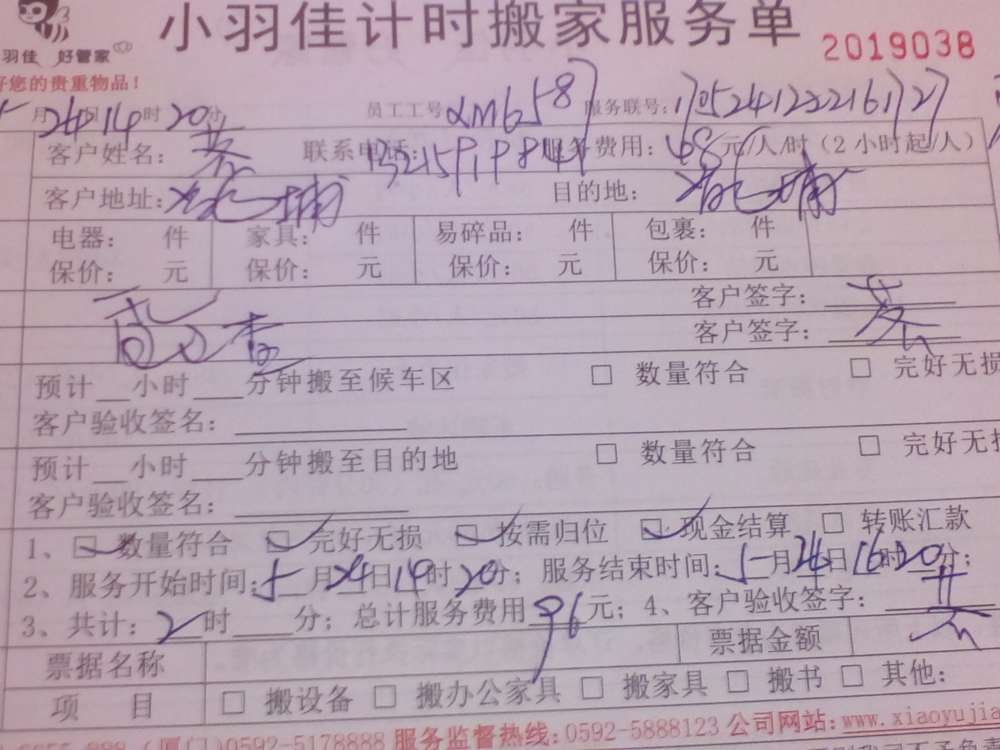 小羽佳计时搬家服务单
2019038
羽佳 好管家
好您的贵重物品！
5月24日14时20分 员工工号 服务联号：
客户姓名： 联系电话： 服务费用：48元/人/时（2小时起/人）
客户地址： 目的地：
电器： 件 家具： 件 易碎品： 件 包裹： 件
保价： 元 保价： 元 保价： 元 保价： 元
客户签字：
客户签字：
预计__小时___分钟搬至候车区 □ 数量符合 □ 完好无损
客户验收签名：
预计__小时___分钟搬至目的地 □ 数量符合 □ 完好无损
客户验收签名：
1、☑数量符合 ☑完好无损 ☑按需归位 ☑现金结算 □ 转账汇款
2、服务开始时间：5月24日14时20分；服务结束时间：5月24日16时20分；
3、共计：2时____分；总计服务费用96元；4、客户验收签字：
票据名称 票据金额
项 目 □ 搬设备 □ 搬办公家具 □ 搬家具 □ 搬书 □ 其他：
(厦门)0592-5178888 服务监督热线：0592-5888123 公司网站：www.xiaoyujia